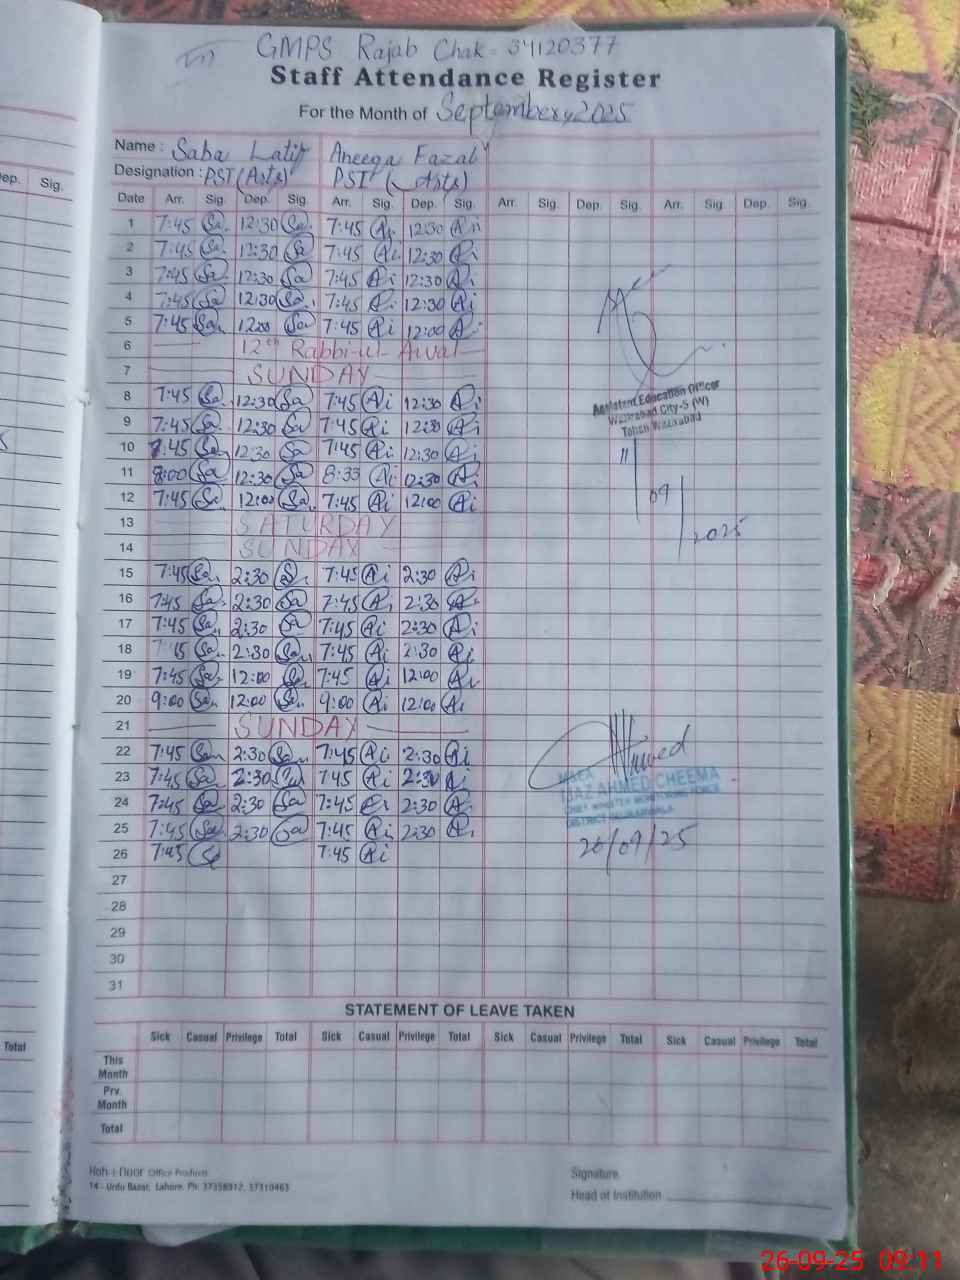 GMPS Rajab Chak - 34120377
Staff Attendance Register
For the Month of September, 2025
Name : Saba Latif Aneeqa Fazal
Designation : PST (Arts) PST (Arts)
ep. Sig.
Date Arr. Sig. Dep. Sig. Arr. Sig. Dep. Sig. Arr. Sig. Dep. Sig. Arr. Sig. Dep. Sig.
1 7:45 Sa 12:30 Sa 7:45 Ai 12:30 Ai
2 7:45 Sa 12:30 Sa 7:45 Ai 12:30 Ai
3 7:45 Sa 12:30 Sa 7:45 Ai 12:30 Ai
4 7:45 Sa 12:30 Sa 7:45 Ai 12:30 Ai
5 7:45 Sa 12:00 Sa 7:45 Ai 12:00 A
6 12th Rabbi-ul-Awal
7 SUNDAY
8 7:45 Sa 12:30 Sa 7:45 Ai 12:30 Ai
Assistant Education Officer
Wazirabad City-5 (W)
Tehsil Wazirabad
9 7:45 Sa 12:30 Sa 7:45 Ai 12:30 Ai
10 7:45 Sa 12:30 Sa 7:45 Ai 12:30 Ai
11 8:00 Sa 12:30 Sa 8:33 Ai 12:30 Ai
12 7:45 Sa 12:00 Sa 7:45 Ai 12:00 Ai
11/09/2025
13 SATURDAY
14 SUNDAY
15 7:45 Sa 2:30 S 7:45 Ai 2:30 Ai
16 7:45 Sa 2:30 Sa 7:45 Ai 2:30 Ai
17 7:45 Sa 2:30 Sa 7:45 Ai 2:30 Ai
18 7:45 Sa 2:30 Sa 7:45 Ai 2:30 Ai
19 7:45 Sa 12:00 Sa 7:45 Ai 12:00 Ai
20 9:00 Sa 12:00 Sa 9:00 Ai 12:00 Ai
21 SUNDAY
22 7:45 Sa 2:30 Sa 7:45 Ai 2:30 Ai
23 7:45 Sa 2:30 Sa 7:45 Ai 2:30 Ai
24 7:45 Sa 2:30 Sa 7:45 Ai 2:30 A
25 7:45 Sa 2:30 Sa 7:45 Ai 2:30 A
26 7:45 Sa 7:45 Ai
Ahmed
MAEA
IJAZ AHMED CHEEMA
CHIEF MINISTER MONITORING FORCE
DISTRICT GUJRANWALA
26/09/25
27
28
29
30
31
STATEMENT OF LEAVE TAKEN
Sick Casual Privilege Total Sick Casual Privilege Total Sick Casual Privilege Total Sick Casual Privilege Total
Total
This Month
Prv. Month
Total
Koh-i-Noor Office Products
14 - Urdu Bazar, Lahore. Ph: 37358912, 37310463
Signature
Head of Institution
26-09-25 09:11